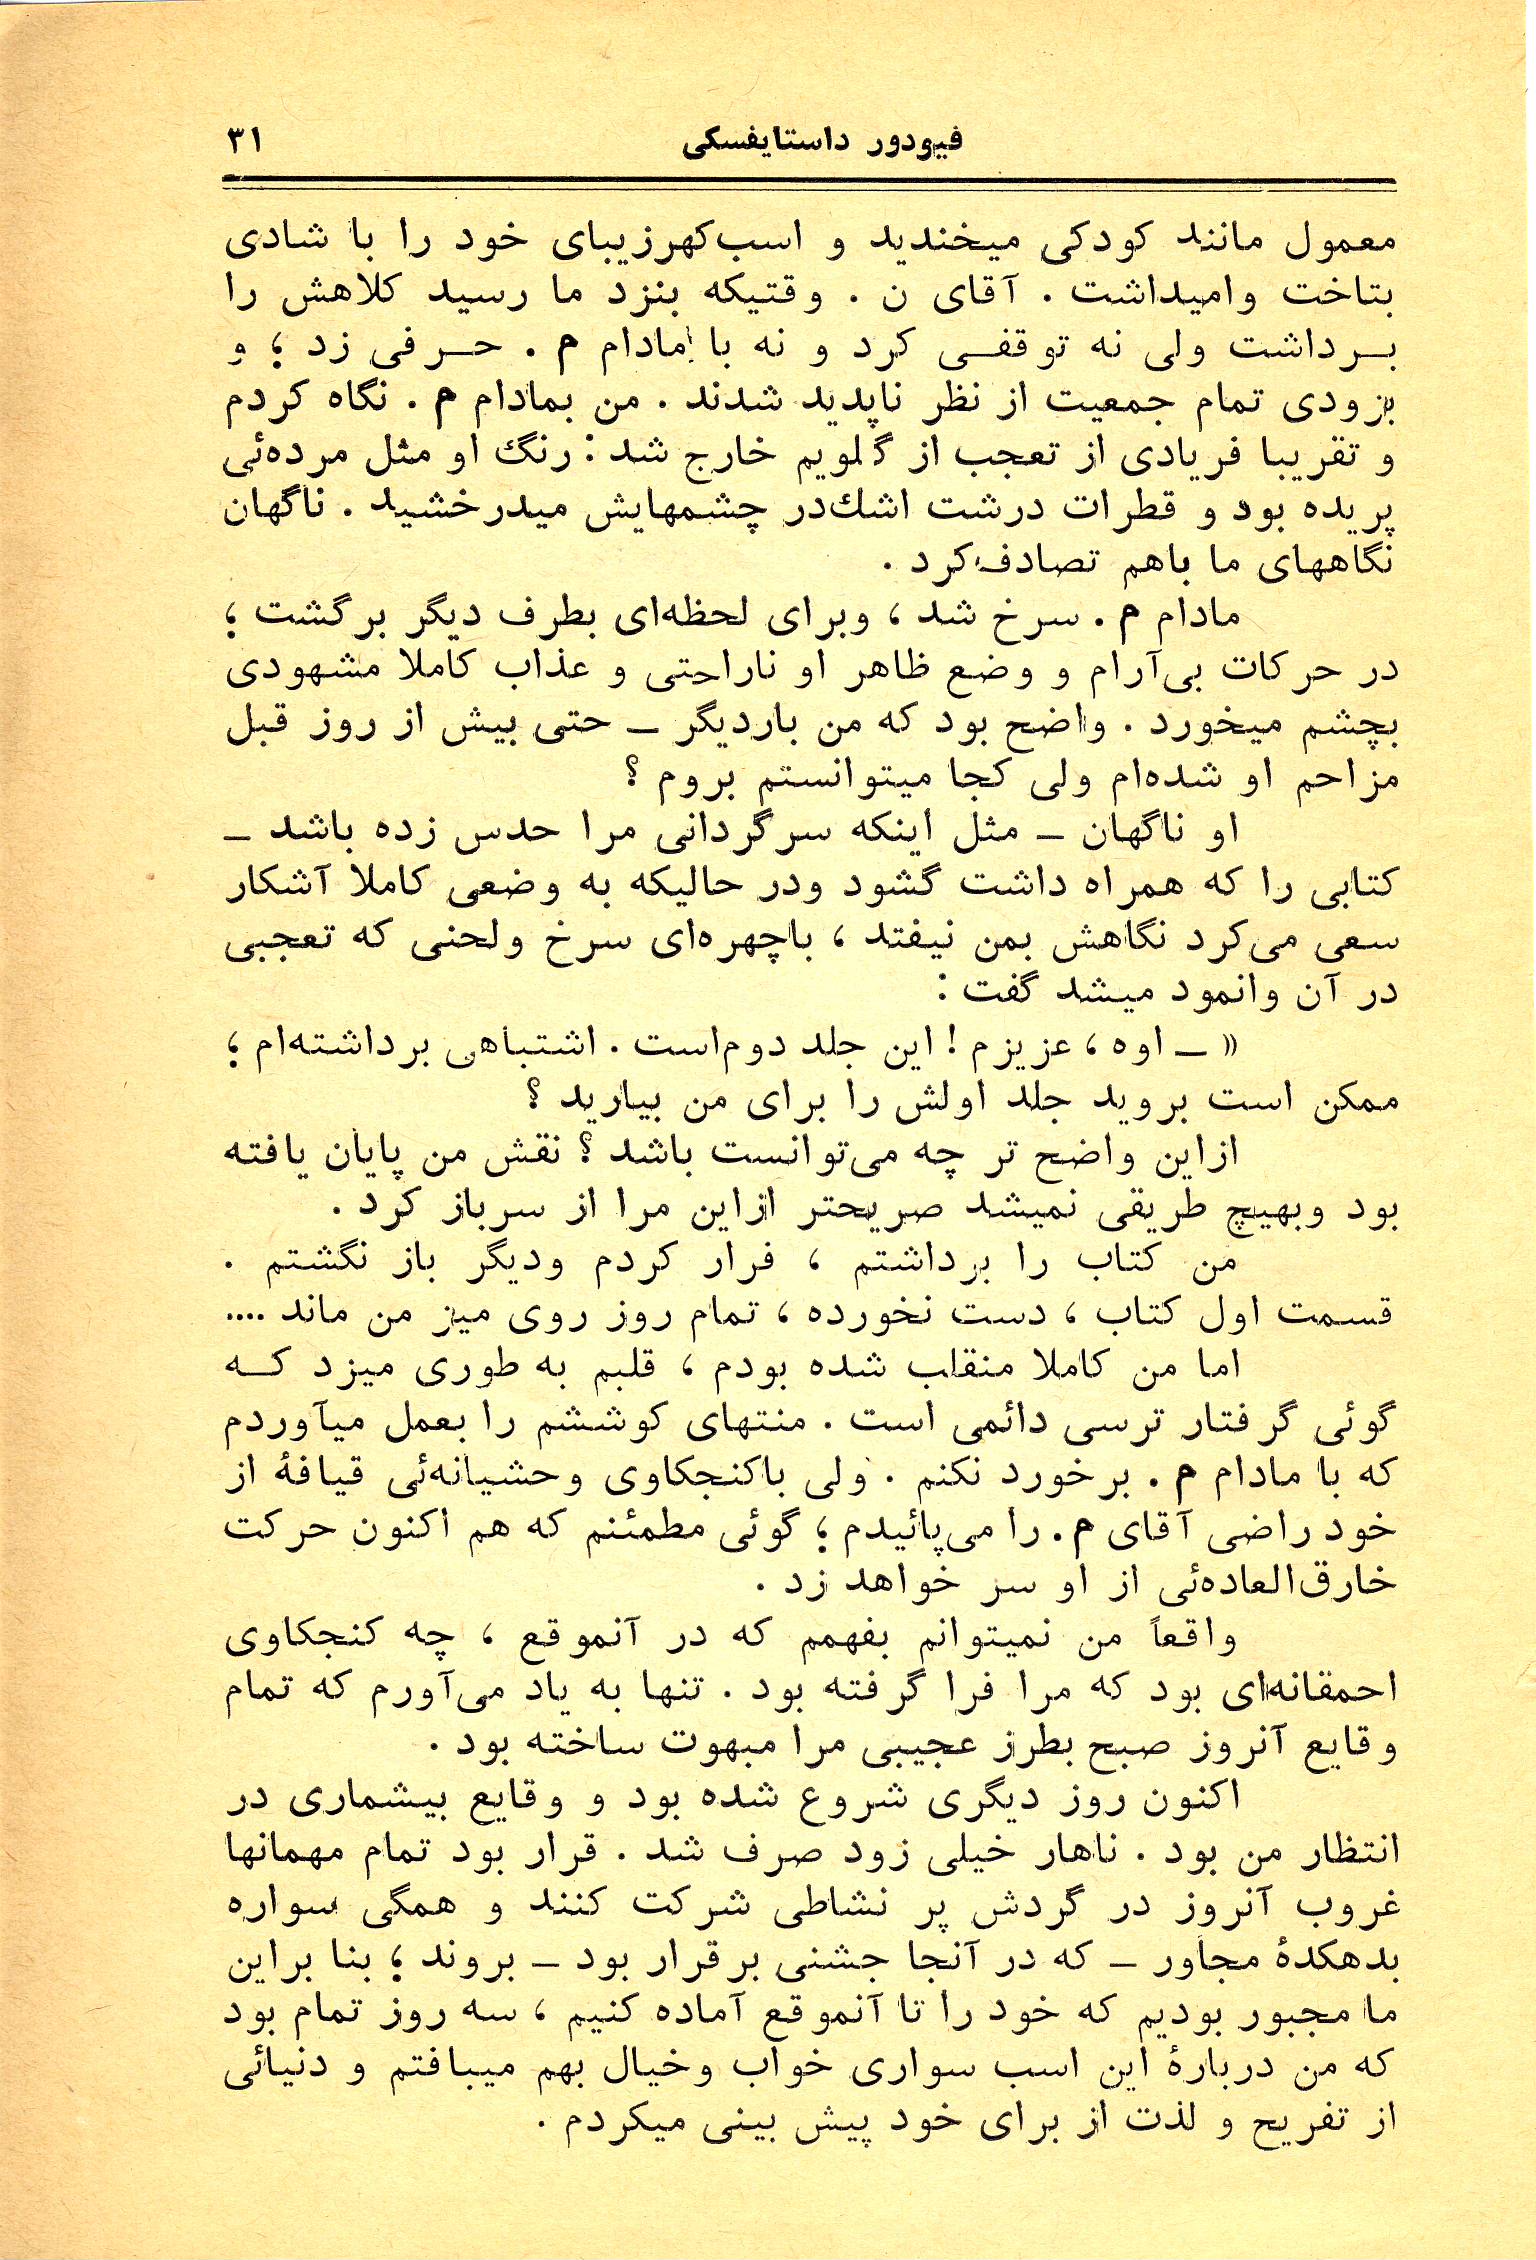 فیودور داستایفسکی ۳۱
معمول مانند کودکی میخندید و اسب‌کهرزیبای خود را با شادی
بتاخت وامیداشت . آقای ن . وقتیکه بنزد ما رسید کلاهش را
بـرداشت ولی نه توقفـی کرد و نه با مادام م . حـرفی زد ؛ و
بزودی تمام جمعیت از نظر ناپدید شدند . من بمادام م . نگاه کردم
و تقریبا فریادی از تعجب از گلویم خارج شد : رنگ او مثل مرده‌ئی
پریده بود و قطرات درشت اشك‌در چشمهایش میدرخشید . ناگهان
نگاههای ما باهم تصادف کرد .
مادام م . سرخ شد ، وبرای لحظه‌ای بطرف دیگر برگشت ؛
در حرکات بی‌آرام و وضع ظاهر او ناراحتی و عذاب کاملا مشهودی
بچشم میخورد . واضح بود که من باردیگر ــ حتی بیش از روز قبل
مزاحم او شده‌ام ولی کجا میتوانستم بروم ؟
او ناگهان ــ مثل اینکه سرگردانی مرا حدس زده باشد ــ
کتابی را که همراه داشت گشود ودر حالیکه به وضعی کاملا آشکار
سعی می‌کرد نگاهش بمن نیفتد ، باچهره‌ای سرخ ولحنی که تعجبی
در آن وانمود میشد گفت :
« ــ اوه ، عزیزم ! این جلد دوم‌است . اشتباهی برداشته‌ام ؛
ممکن است بروید جلد اولش را برای من بیارید ؟
ازاین واضح تر چه می‌توانست باشد ؟ نقش من پایان یافته
بود وبهیچ طریقی نمیشد صریحتر ازاین مرا از سرباز کرد .
من کتاب را برداشتم ، فرار کردم ودیگر باز نگشتم .
قسمت اول کتاب ، دست نخورده ، تمام روز روی میز من ماند ....
اما من کاملا منقلب شده بودم ، قلبم به طوری میزد کـه
گوئی گرفتار ترسی دائمی است . منتهای کوششم را بعمل میآوردم
که با مادام م . برخورد نکنم . ولی باکنجکاوی وحشیانه‌ئی قیافهٔ از
خود راضی آقای م . را می‌پائیدم ؛ گوئی مطمئنم که هم اکنون حرکت
خارق‌العاده‌ئی از او سر خواهد زد .
واقعاً من نمیتوانم بفهمم که در آنموقع ، چه کنجکاوی
احمقانه‌ای بود که مرا فرا گرفته بود . تنها به یاد می‌آورم که تمام
وقایع آنروز صبح بطرز عجیبی مرا مبهوت ساخته بود .
اکنون روز دیگری شروع شده بود و وقایع بیشماری در
انتظار من بود . ناهار خیلی زود صرف شد . قرار بود تمام مهمانها
غروب آنروز در گردش پر نشاطی شرکت کنند و همگی سواره
بدهکدهٔ مجاور ــ که در آنجا جشنی برقرار بود ــ بروند ؛ بنا براین
ما مجبور بودیم که خود را تا آنموقع آماده کنیم ، سه روز تمام بود
که من دربارهٔ این اسب سواری خواب وخیال بهم میبافتم و دنیائی
از تفریح و لذت از برای خود پیش بینی میکردم .